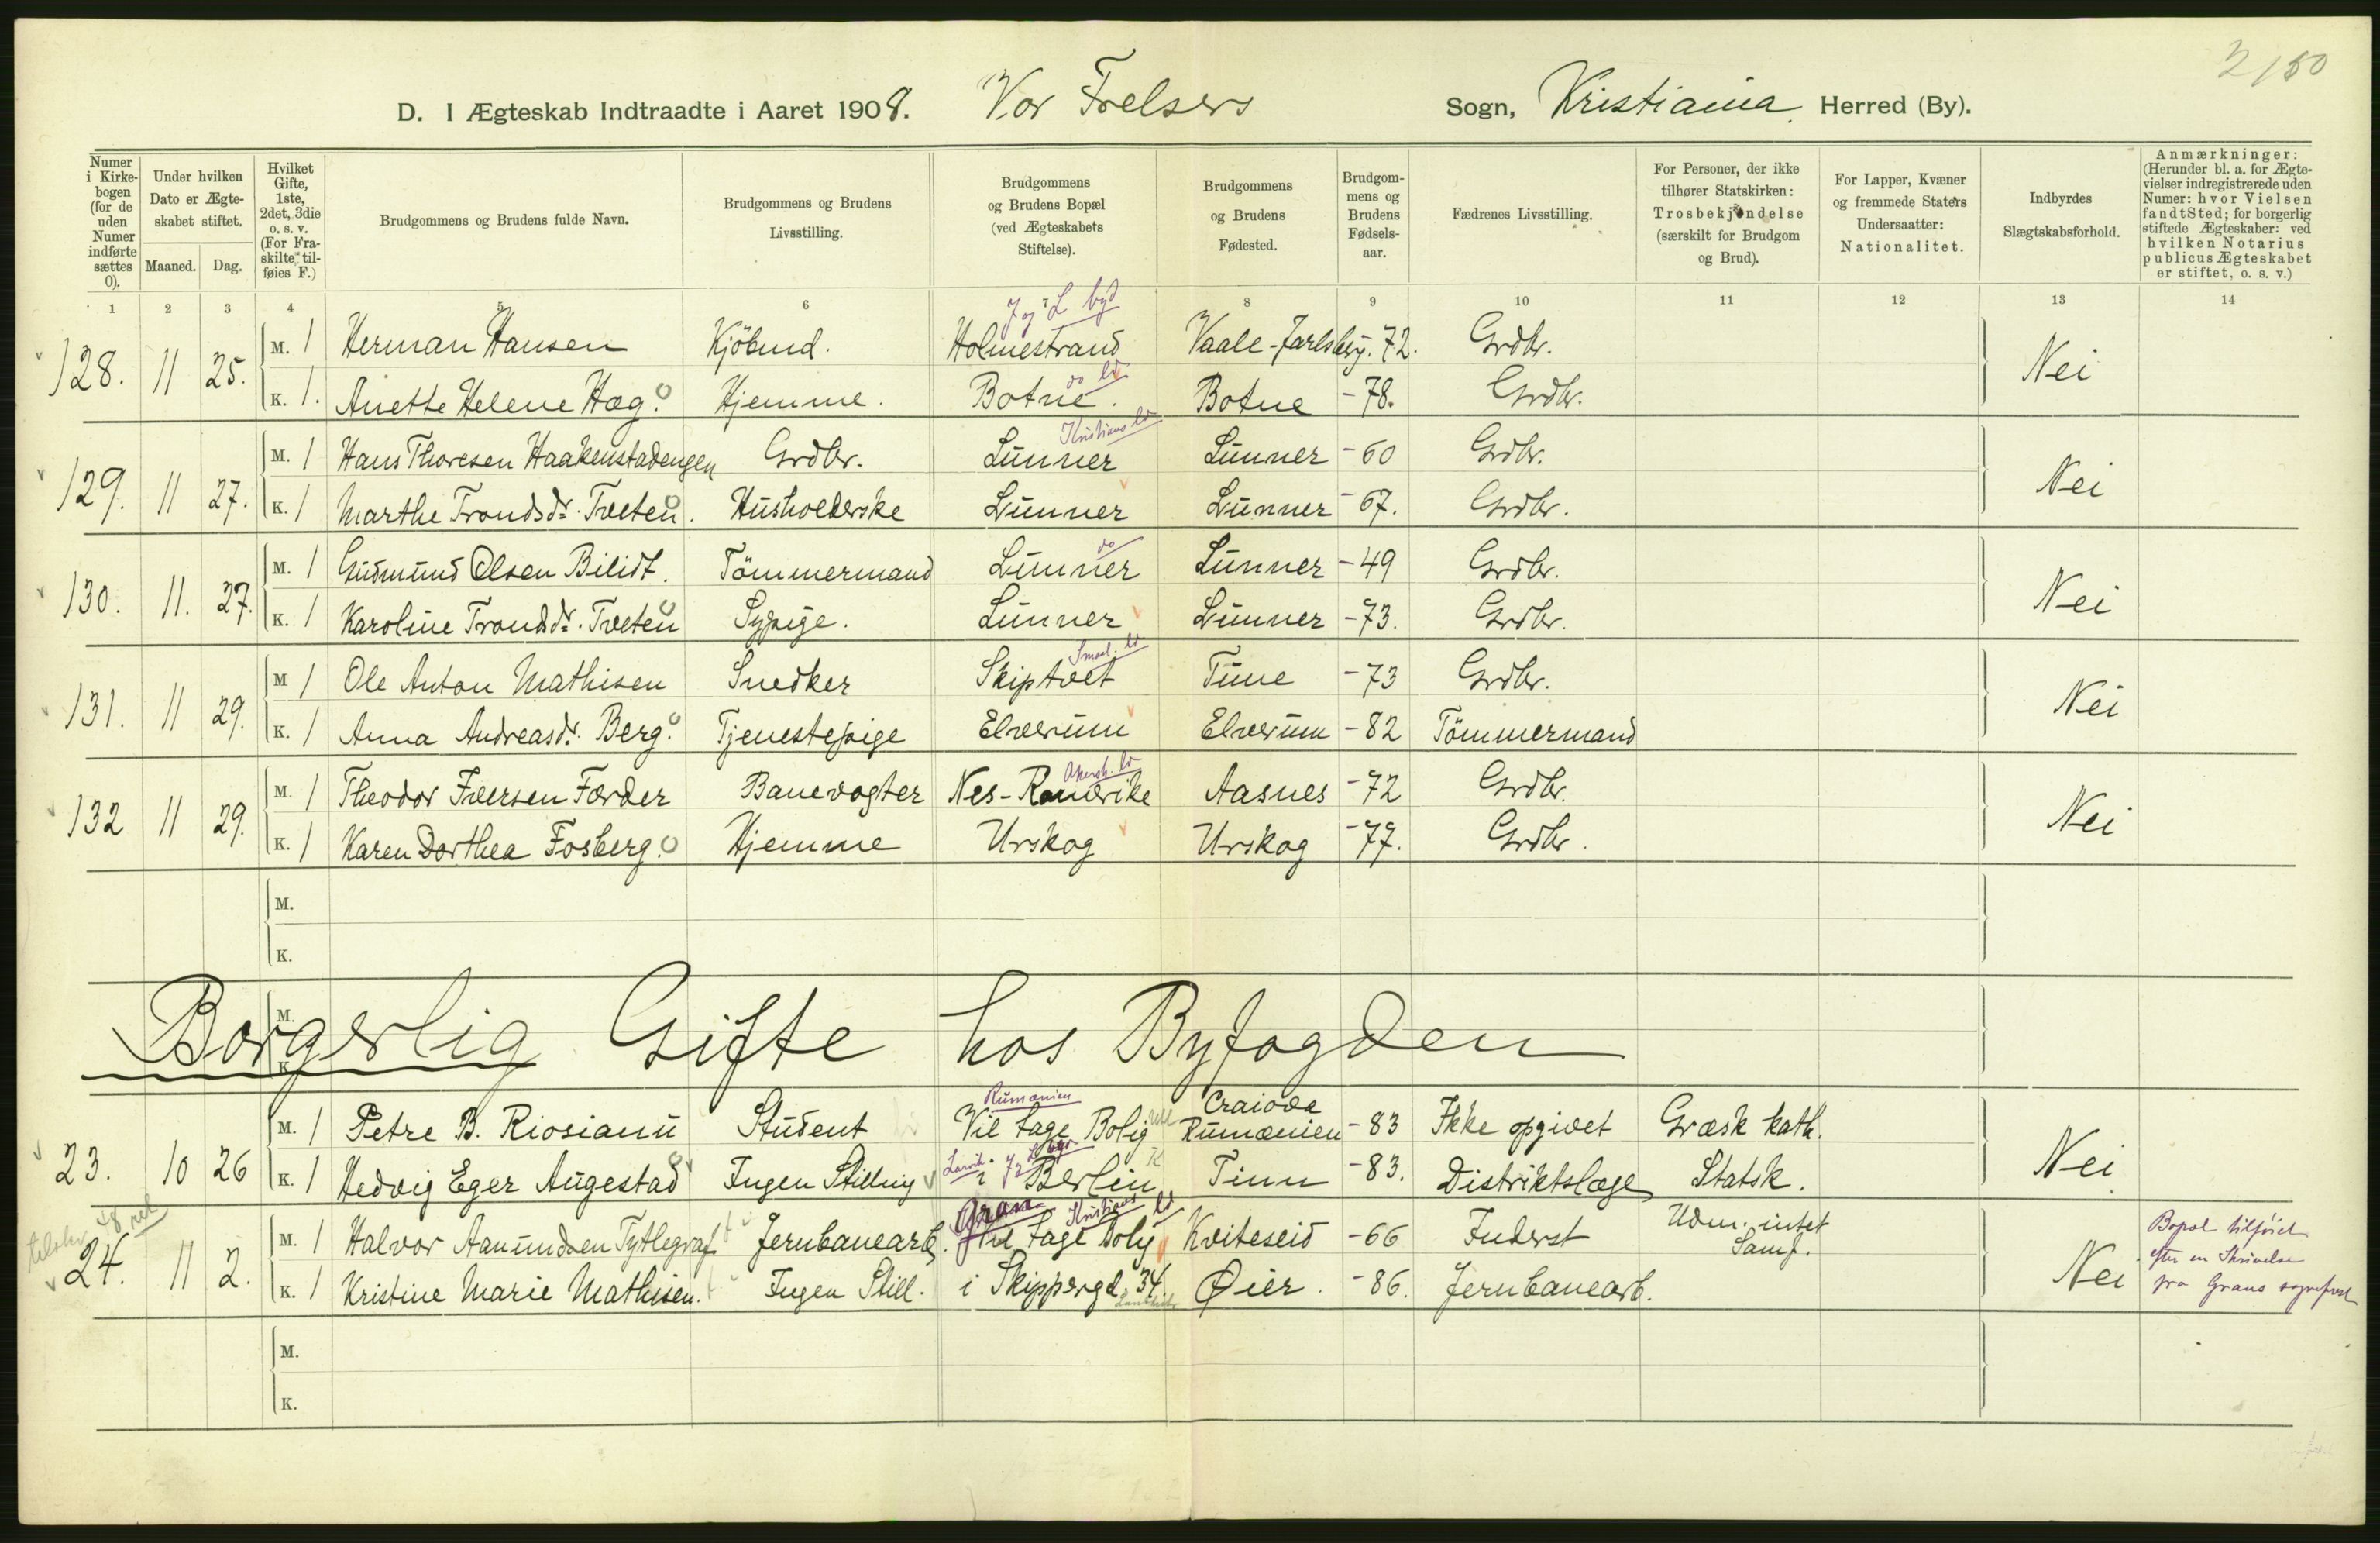 2/50
D. I Ægteskab Indtraadte i Aaret 1908. Vor Frelsers Sogn, Kristiania Herred (By).
Numer i Kirkebogen (for de uden Numer indførte sættes 0).
Under hvilken Dato er Ægteskabet stiftet.
Maaned. Dag.
Hvilket Gifte, 1ste, 2det, 3die o. s. v. (For Fraskilte tilføies F.)
Brudgommens og Brudens fulde Navn.
Brudgommens og Brudens Livsstilling.
Brudgommens og Brudens Bopæl (ved Ægteskabets Stiftelse).
Brudgommens og Brudens Fødested.
Brudgommens og Brudens Fødselsaar.
Fædrenes Livsstilling.
For Personer, der ikke tilhører Statskirken: Trosbekjendelse (særskilt for Brudgom og Brud).
For Lapper, Kvæner og fremmede Staters Undersaatter: Nationalitet.
Indbyrdes Slægtskabsforhold.
Anmærkninger: (Herunder bl. a. for Ægtevielser indregistrerede uden Numer: hvor Vielsen fandt Sted; for borgerlig stiftede Ægteskaber: ved hvilken Notarius publicus Ægteskabet er stiftet, o. s. v.)
1 2 3 4 5 6 7 8 9 10 11 12 13 14
J og L byd
128. 11 25. M. 1 Herman Hansen Kjöbmd. Holmestrand Vaale-Jarlsberg. 72. Grdbr. Nei
do ld
K. 1. Anette Helene Hæg. Hjemme. Botne. Botne - 78. Grdbr.
Kristians ld
129. 11 27. M. 1 Hans Thoresen Haakenstadengen Grdbr. Lunner Lunner - 60 Grdbr. Nei
K. 1 Marthe Trondsdr. Tveten. Husholderske Lunner Lunner - 67. Grdbr.
do
130. 11. 27. M. 1 Gudmund Olsen Bilidt. Tömmermand Lunner Lunner - 49 Grdbr. Nei
K. 1 Karoline Trondsdr. Tveten Sypige. Lunner Lunner - 73. Grdbr.
Smaal. ld
131. 11 29. M 1 Ole Anton Mathisen Snedker Skiptvet Tune - 73 Grdbr. Nei
K. 1 Anna Andreasdr. Berg. Tjenestepige Elverum Elverum - 82 Tömmermand
Akersh. ld
132 11 29. M. 1 Theodor Iversen Førder Banevogter Nes-Romerike Aasnes - 72 Grdbr. Nei
K. 1 Karen Dorthea Fosberg. Hjemme Urskog Urskog - 77. Grdbr.
M.
K.
M.
Borgerlig Gifte hos Byfogden
K.
Rumænien
23. 10 26 M. 1 Petre B. Riosianu Student Vil tage Bolig Craiova Rumænien - 83 Ikke opgivet Græsk kath. Nei
K. 1 Hedvig Eger Augestad Ingen Stilling i Berlin Tinn - 83. Distriktslæge Statsk.
Gran Kristians ld
24. 11 2. M. 1 Halvor Aanundsen Tytlegraf Jernbanearb. Vil tage Bolig Kviteseid - 66 Inderst Udm. intet Samf. Nei
K. 1 Kristine Marie Mathisen. Ingen Still. i Skippergd. 34. Øier. - 86. Jernbanearb.
Bopæl tilføiet
efter en Skrivelse
fra Grans sogneprest
M.
K.